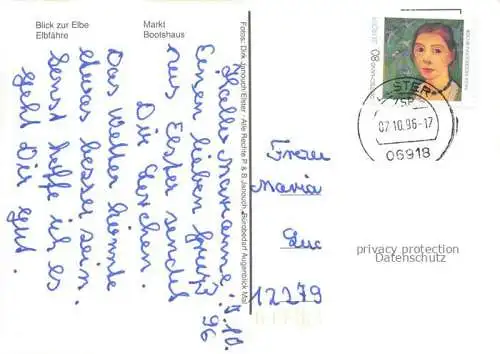 Blick zur Elbe
Elbfähre
Markt
Bootshaus
Hallo Marianne! 7.10.
Einen lieben Gruß 96
aus Elster sendet
Dir
Das Wetter könnte
etwas besser sein.
Sonst hoffe ich es
geht Dir gut.
Fotos: Dirk Janouch Elster · Alle Rechte P & B Janouch, Bürobedarf Augenblick Mal
80
DEUTSCHE BUNDESPOST
ELSTER
07.10.96-17
06918
Frau
Maria
Luc
12279
privacy protection
Datenschutz